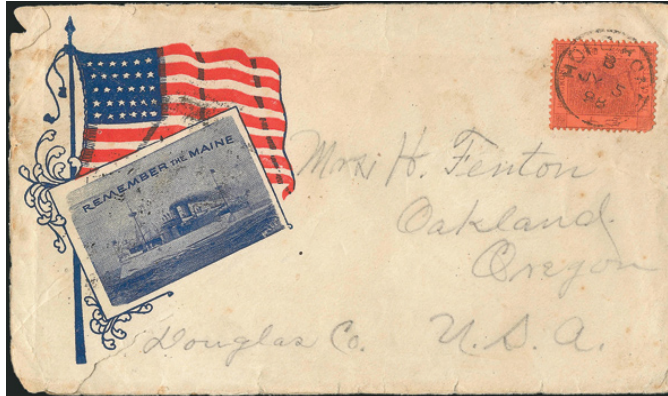 REMEMBER THE MAINE
HONG KONG
B
JY 5
98
Mrs. H. Fenton
Oakland.
Oregon
Douglas Co. U.S.A.